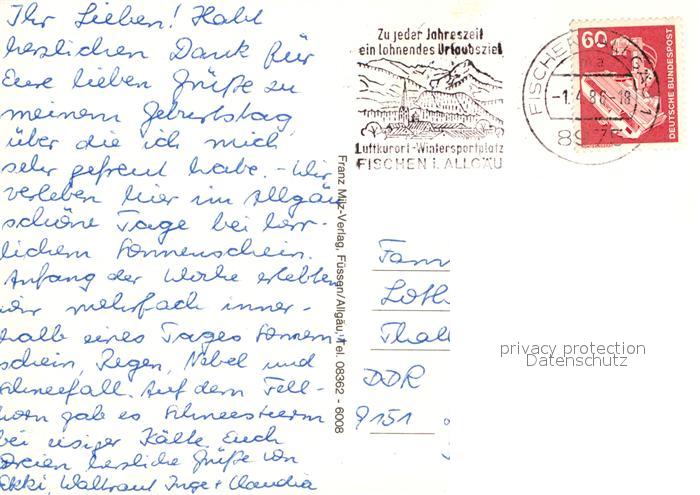 Ihr Lieben! Habt
herzlichen Dank für
Eure lieben Grüße zu
meinem Geburtstag,
über die ich mich
sehr gefreut habe. - Wir
verleben hier im Allgäu
schöne Tage bei herr-
lichem Sonnenschein.
Anfang der Woche erlebten
wir mehrfach inner-
halb eines Tages Sonnen-
schein, Regen, Nebel und
Schneefall. Auf dem Fell-
horn gab es Schneesturm
bei eisiger Kälte. Euch
Dreien herzliche Grüße von
Ekki, Waltraut Inge + Claudia
Franz Milz-Verlag, Füssen/Allgäu, Tel. 08362 - 6008
Zu jeder Jahreszeit
ein lohnendes Urlaubsziel
Luftkurort-Wintersportplatz
FISCHEN i. ALLGÄU
FISCHEN
86-18
8975
60
DEUTSCHE BUNDESPOST
Fam
Loth
Thal
DDR
9151
privacy protection
Datenschutz